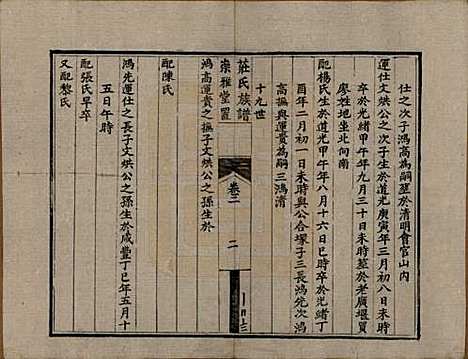 仕之次子鴻高為嗣墓於清明會官山內
運仕文烘公之次子生於道光庚寅年三月初八日未時
卒於光緒甲午年九月三十日未時墓於老廣堰買
廖姓地坐北向南
配楊氏生於道光甲午年八月十六日巳時卒於光緒丁
酉年二月初一日未時與公合塚子三長鴻先次鴻
高撫與運貴為嗣三鴻清
十九世
莊氏族譜
崇雅堂置
卷三
二
鴻高運貴之撫子文烘公之孫生於
配陳氏
鴻先運仕之長子文烘公之孫生於咸豐丁巳年五月十
五日午時
配張氏早卒
又配黎氏